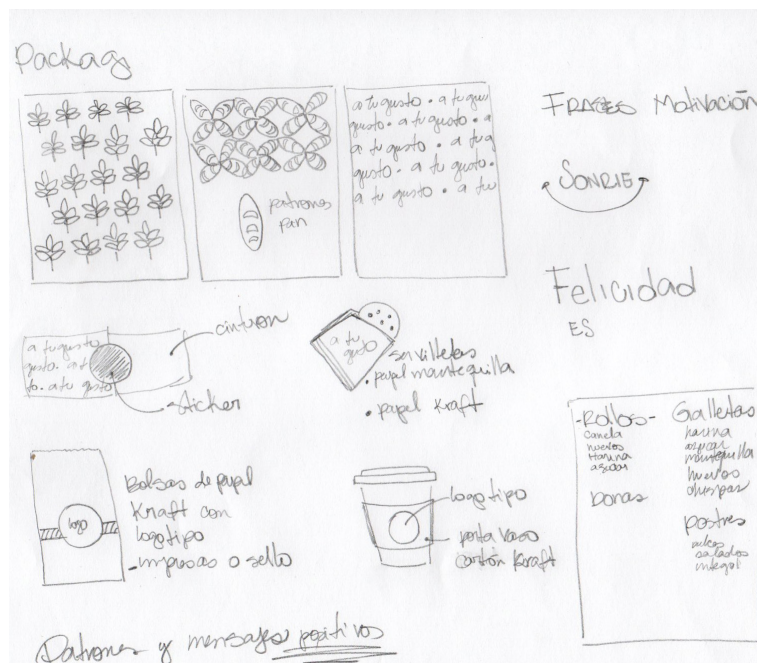 Packag
a tu gusto • a tu gus
gusto • a tu gusto • a
a tu gusto • a tu g
gusto • a tu gusto •
a tu gusto • a tu
patrones
pan
FRASES Motivación
SONRIE
Felicidad
ES
a tu gusto
gusto • a t
to • a tu gusto
cinturon
sticker
a tu
gusto
servilletas
• papel mantequilla
• papel Kraft
logo
Bolsas de papel
Kraft con
logotipo
• impresas o sello
logotipo
porta vaso
cartón Kraft
-Rollos-
canela
huevos
Harina
azucar
Donas
Galletas
harina
azucar
mantequilla
huevos
chispas
postres
salados
integral
Patrones y mensajes positivos